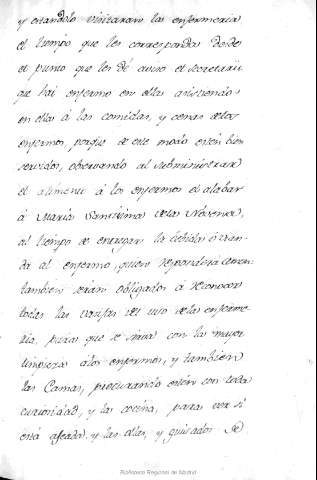 y estandolo visitaran las enfermeria
el tiempo que les corresponda desde
el punto que les dé aviso el secretario
que hai enfermo en ellas asistiendo
en ellas á las comidas, y cenas delos
enfermos, porque de este modo estén bien
servidos, observando al subministrar
el alimento á los enfermos el alabar
á Maria Santisima dela Novena,
al tiempo de entregar la bebida ó vian-
da al enfermo, quien responderá Amen:
tambien seran obligados á reconocer
todas las vasijas del uso dela enferme
ria, para que se sirva con la mayor
limpieza alos enfermos, y tambien
las Camas, procurando estén con toda
curiosidad, y la cocina, para ver si
está aseada, y las ollas, y guisados
Biblioteca Regional de Madrid